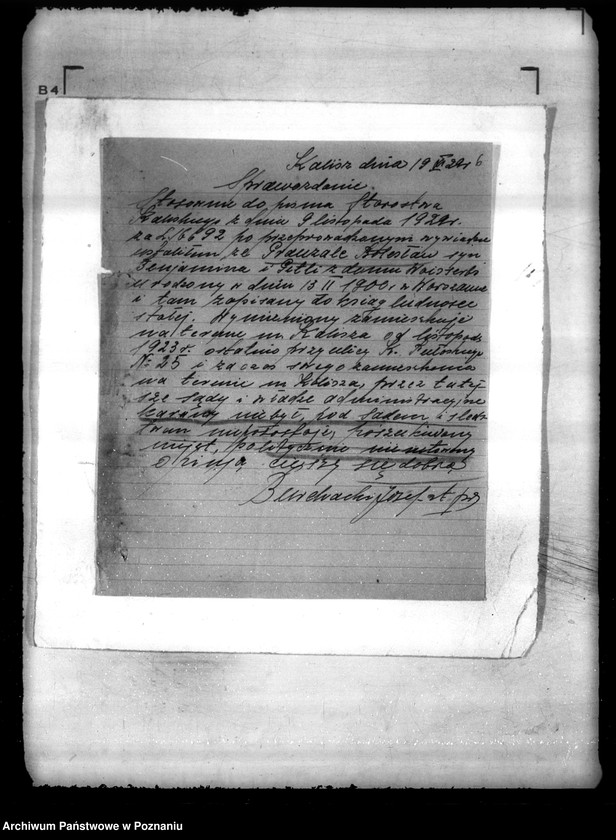 B4
Kalisz dnia 19 29r 6
Sprawozdanie.
Stosownie do pisma Starostwa
Kaliskiego z dnia 9 listopada 1929r.
za L. 16692 po przeprowadzonym wywiadzie
ustaliłem, że Bolesław syn
Benjamina i z domu
urodzony w dniu 13 II 1900 r. w Warszawie
i tam zapisany do ksiąg ludności
stałej. Wymieniony zamieszkuje
na terenie m. Kalisza od listopada
1923 r. ostatnio przy ulicy
№ 25 i za czas swego zamieszkania
na terenie m. Kalisza, przez tutej
sze sądy i władze administracyjne
karany nie był, pod sądem i śledz
twem nie pozostaje, poszukiwany
nie jest, politycznie
opinją cieszy się dobrą
Józef st. prz
Archiwum Państwowe w Poznaniu